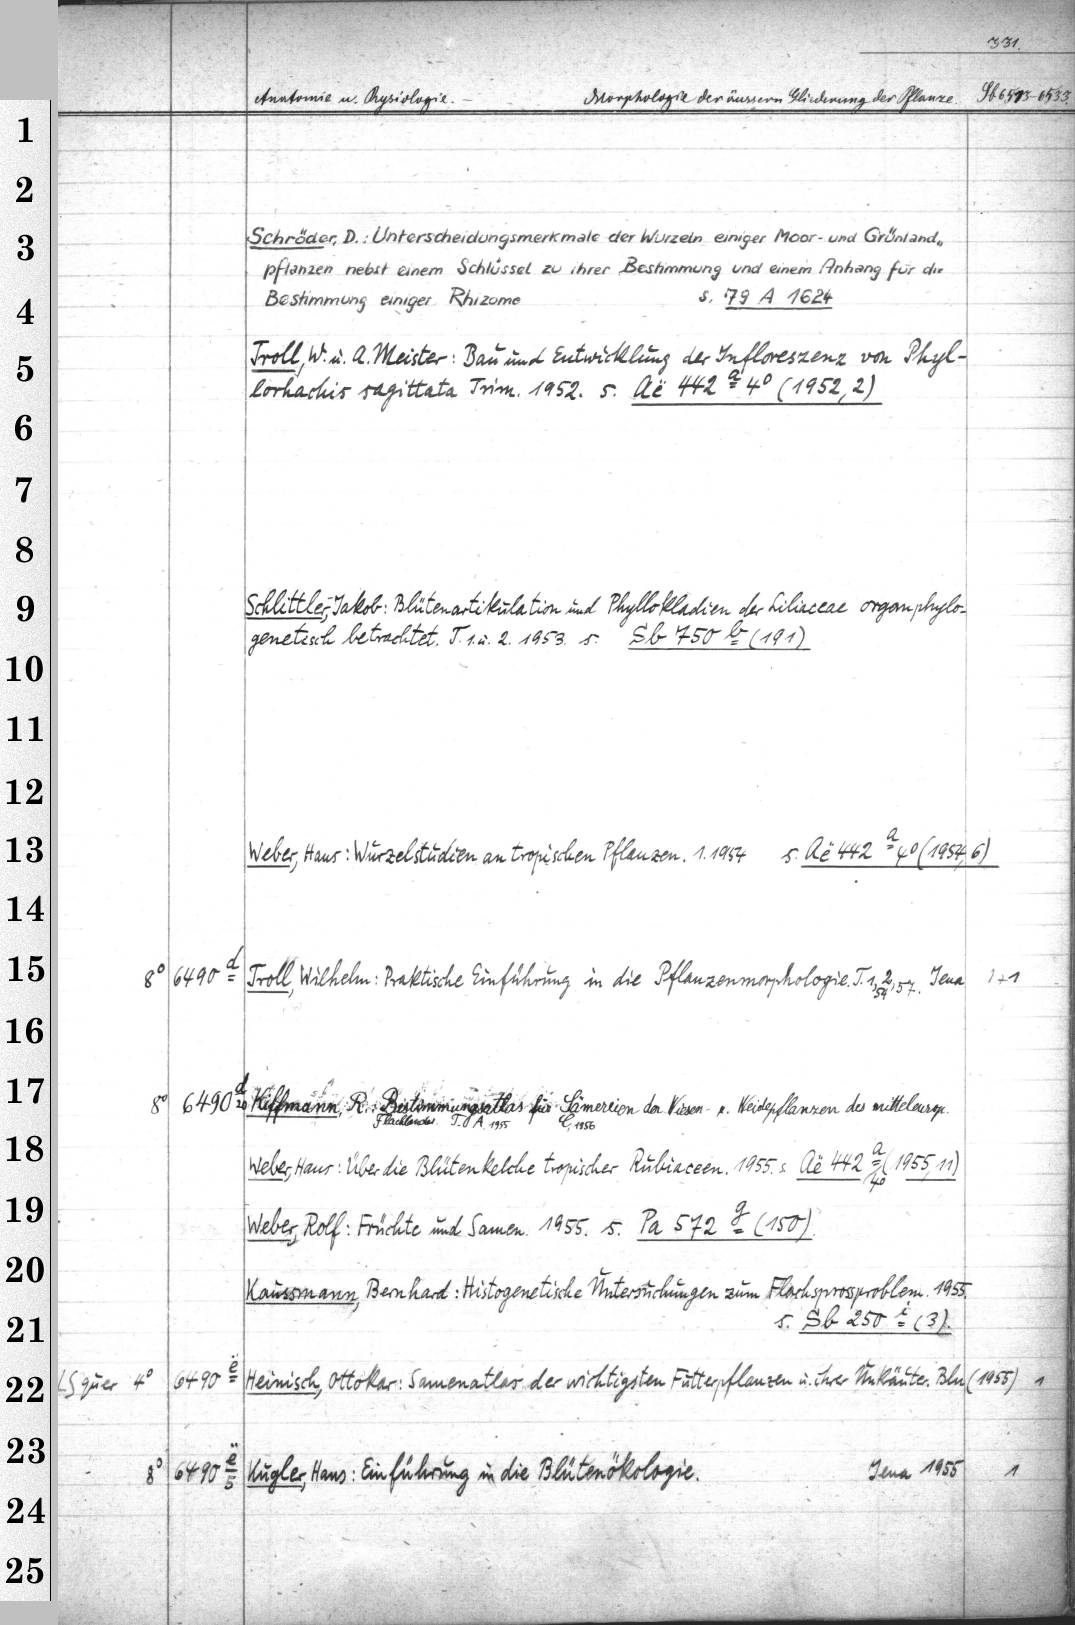 331.
Anatomie u. Physiologie. – Morphologie der äussern Gliederung der Pflanze. Sb 6513-6533.
1
2
3 Schröder, D.: Unterscheidungsmerkmale der Wurzeln einiger Moor- und Grünland„
pflanzen nebst einem Schlüssel zu ihrer Bestimmung und einem Anhang für die
4 Bestimmung einiger Rhizome s. 79 A 1624
5 Troll, W. u. A. Meister: Bau und Entwicklung der Infloreszenz von Phyl-
lorhachis sagittata Trim. 1952. s. Aë 442 a 4° (1952,2)
6
7
8
9 Schlittler, Jakob: Blütenartikulation und Phyllokladien der Liliaceae organphylo-
genetisch betrachtet. T. 1. u. 2. 1953. s. Sb 750 b (191)
10
11
12
13 Weber, Hans: Wurzelstudien an tropischen Pflanzen. 1. 1954 s. Aë 442 a 4° (1954,6)
14
15 8° 6490 d Troll, Wilhelm: Praktische Einführung in die Pflanzenmorphologie. T. 1, 2, 54, 57. Jena 1+1
16
17 8° 6490 d/20 Kiffmann, R.: Bestimmungsatlas für Sämereien der Wiesen- u. Weidepflanzen des mitteleurop.
Flachlandes. T. A, 1955 C, 1956
18 Weber, Hans: Über die Blütenkelche tropischer Rubiaceen. 1955. s. Aë 442 a 4° (1955,11)
19 Weber, Rolf: Früchte und Samen. 1955. s. Pa 572 g (150).
20 Kaussmann, Bernhard: Histogenetische Untersuchungen zum Flachsprossproblem. 1955
21 s. Sb 250 i (3).
22 LS quer 4° 6490 ë Heinisch, Ottokar: Samenatlas der wichtigsten Futterpflanzen u. ihrer Unkäuter. Bln (1955) 1
23 8° 6490 ë/5 Kugler, Hans: Einführung in die Blütenökologie. Jena 1955 1
24
25